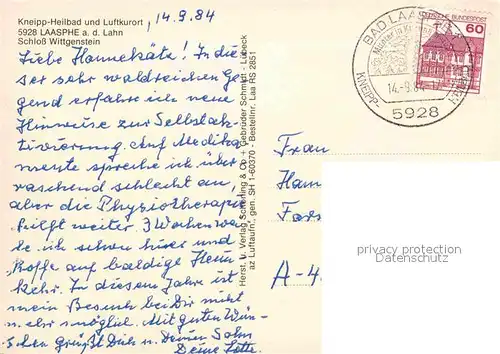 Kneipp-Heilbad und Luftkurort
5928 LAASPHE a. d. Lahn
Schloß Wittgenstein
14.9.84
Liebe Hannekäte! In die
ser sehr waldreichen Ge
gend erfahre ich neue
Hinweise zur Selbstak-
tivierung. Auf Medika
mente spreche ich über
raschend schlecht an,
aber die Physiotherapie
hilft weiter. 3 Wochen wer
de ich schon hier und
hoffe auf baldige Heim
kehr. In diesem Jahre ist
mein Besuch bei Dir nicht
mehr möglich. Mit guten Wün
schen grüßt Dich u. Deinen Sohn
Deine Lotte.
Herst. u. Verlag Schöning & Co + Gebrüder Schmidt - Lübeck
az Luftaufn., gen. SH 1-60370 - Bestellnr. Laa HS 2851
DEUTSCHE BUNDESPOST
60
BAD LAASPHE
14.-9.84
KNEIPP-
5928
Frau
Ham
A-4
privacy protection
Datenschutz